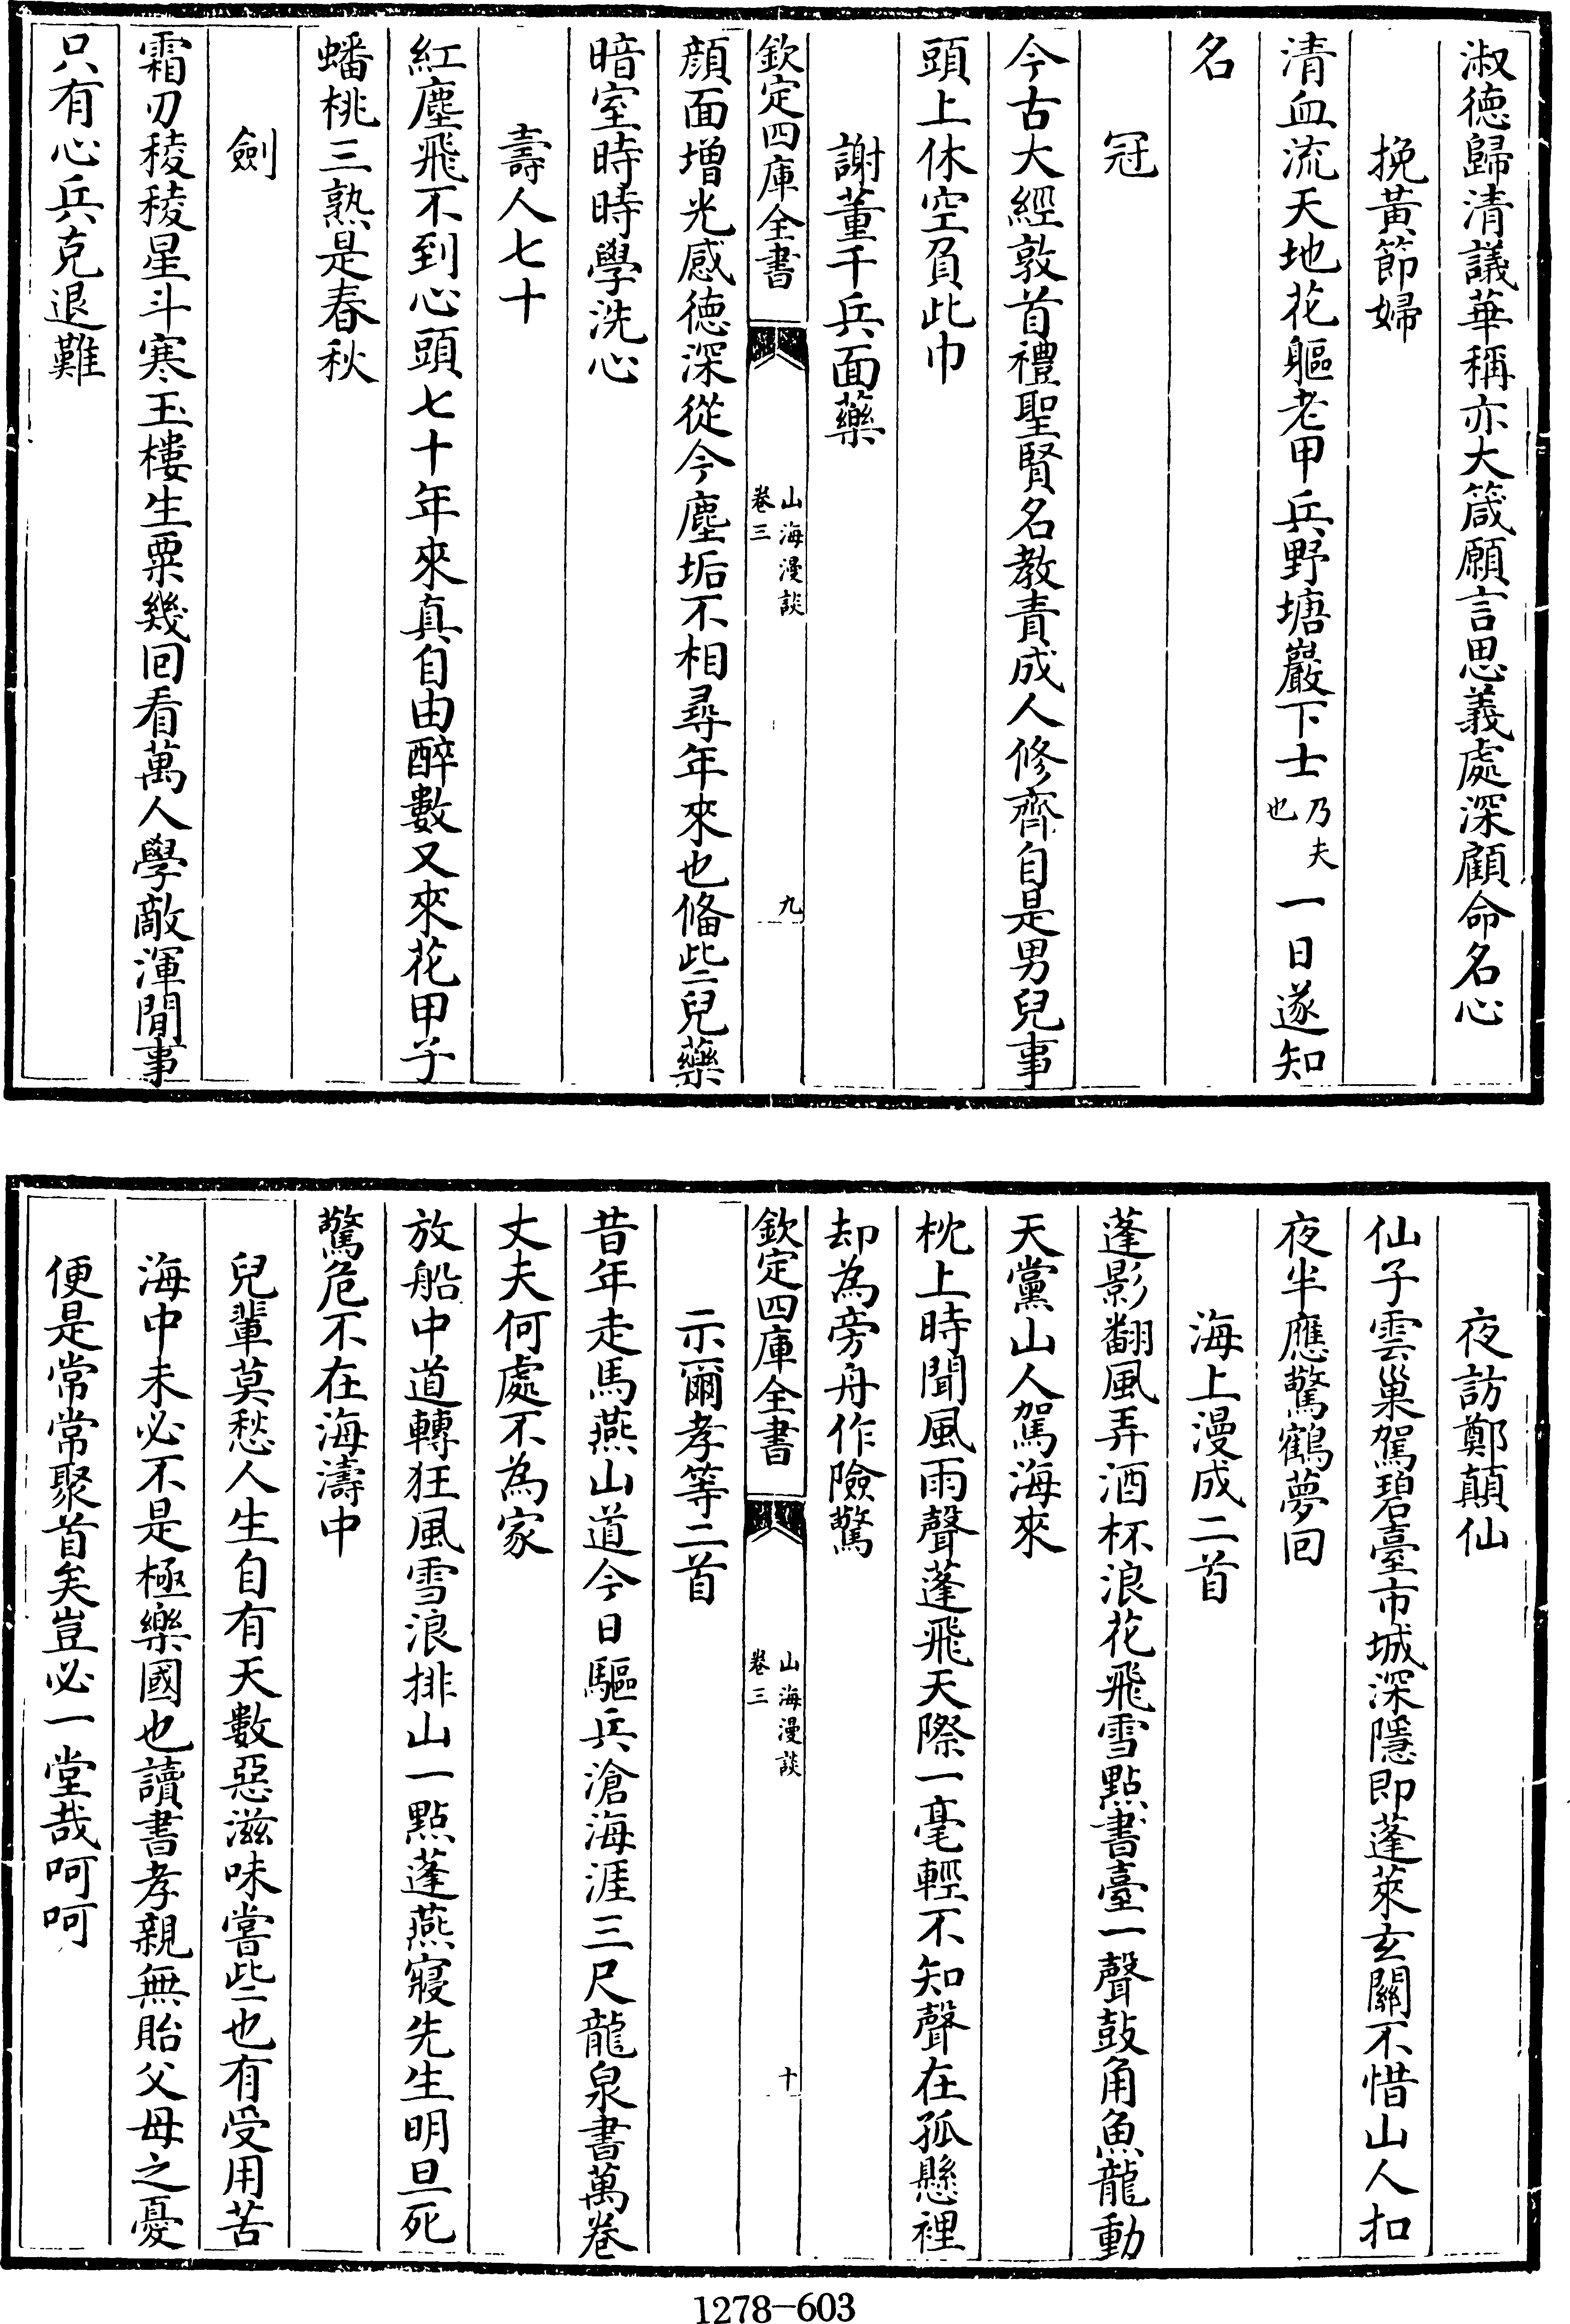 淑徳歸清議華稱亦大箴願言思義處深顧命名心
挽黃節婦
清血流天地花軀老甲兵野塘巖下士乃夫也一日遂知
名
冠
今古大經敦首禮聖賢名教責成人修齊自是男兒事
頭上休空負此巾
謝董千兵面藥
欽定四庫全書
山海漫談
卷三
九
顔面增光感徳深從今塵垢不相尋年來也俻些兒藥
暗室時時學洗心
壽人七十
紅塵飛不到心頭七十年來真自由醉數又來花甲子
蟠桃三熟是春秋
劍
霜刃稜稜星斗寒玉樓生粟幾回看萬人學敵渾閒事
只有心兵克退難
夜訪鄭顛仙
仙子雲巢駕碧臺市城深隱即蓬萊玄關不惜山人扣
夜半應驚鶴夢回
海上漫成二首
蓬影翻風弄酒杯浪花飛雪點書臺一聲鼓角魚龍動
天黨山人駕海來
枕上時聞風雨聲蓬飛天際一毫輕不知聲在孤懸裡
却為旁舟作險驚
欽定四庫全書
山海漫談
卷三
十
示爾孝等二首
昔年走馬燕山道今日驅兵滄海涯三尺龍泉書萬卷
丈夫何處不為家
放船中道轉狂風雪浪排山一點蓬燕寢先生明旦死
驚危不在海濤中
兒輩莫愁人生自有天數惡滋味嘗些也有受用苦
海中未必不是極樂國也讀書孝親無貽父母之憂
便是常常聚首矣豈必一堂哉呵呵
1278-603